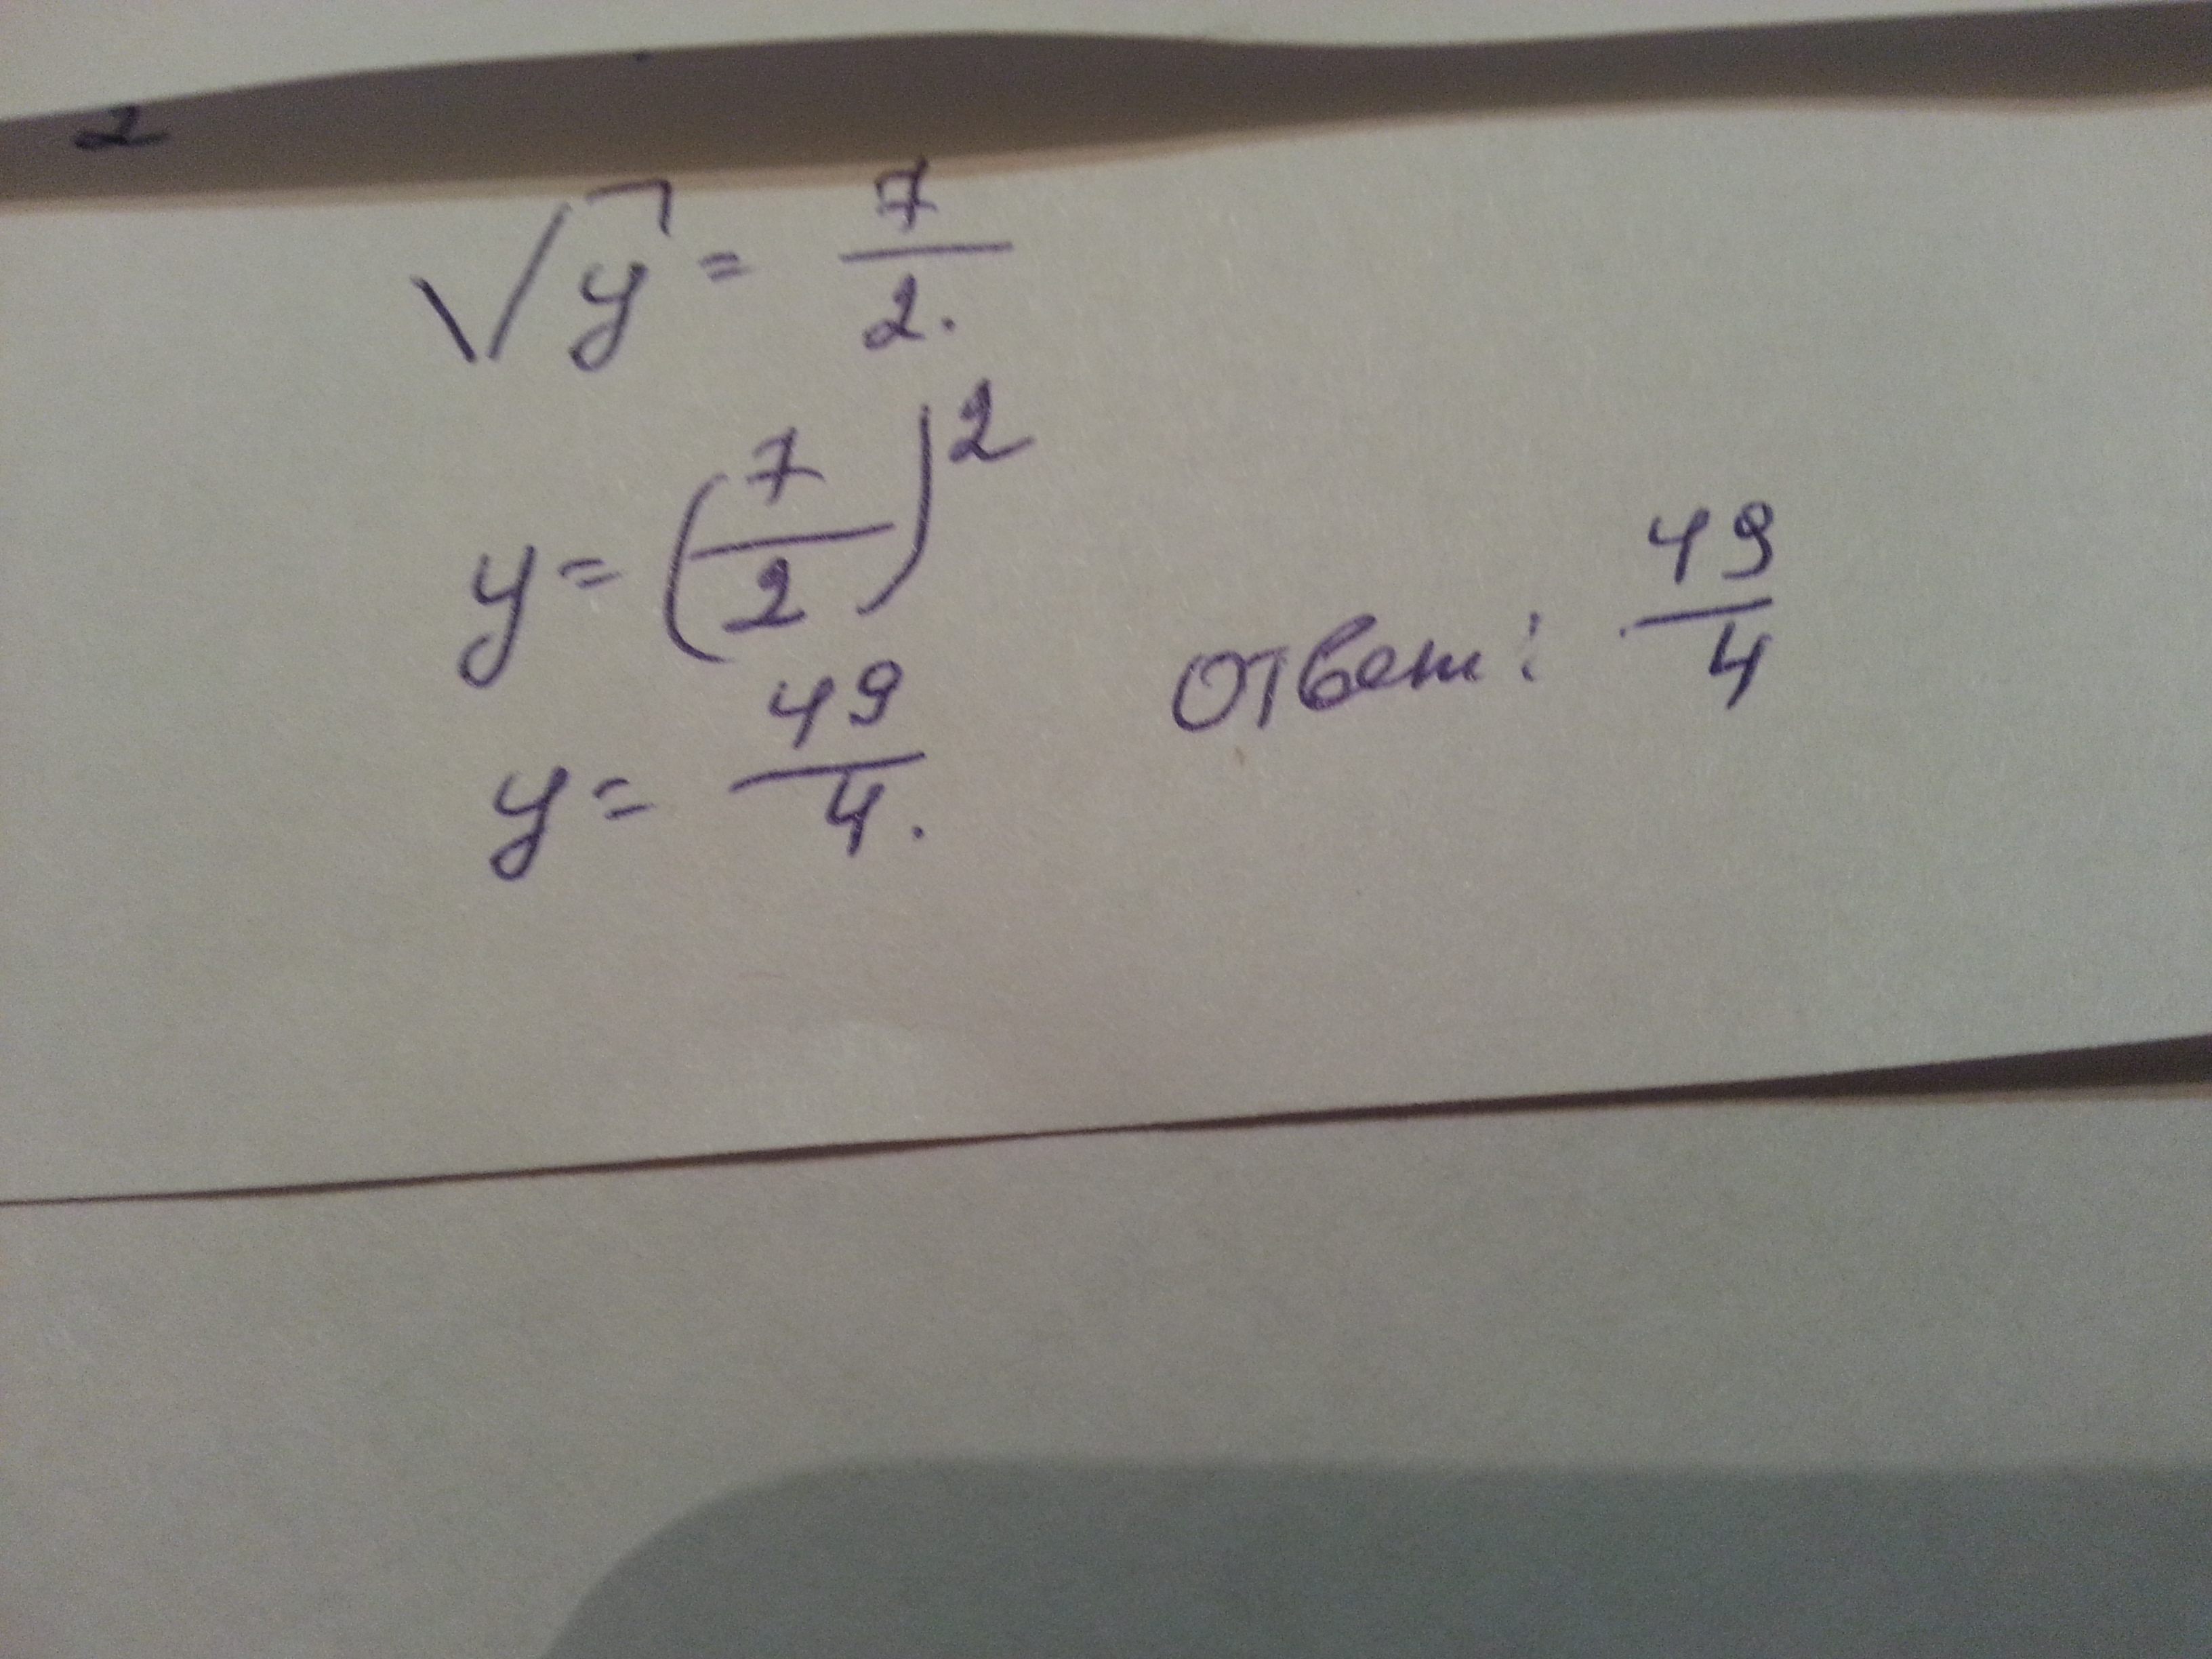 2
√y = 7/2.
y = (7/2)²
y = 49/4.
Ответ: 49/4